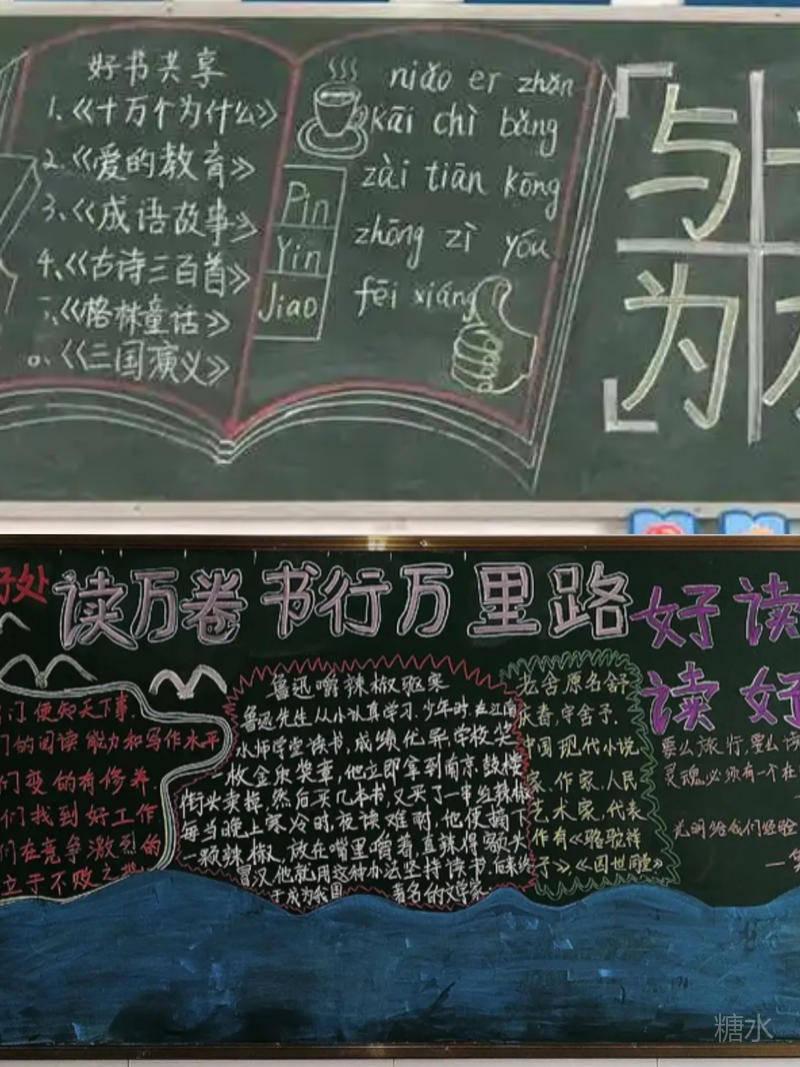 好书共享
1、《十万个为什么》
2、《爱的教育》
3、《成语故事》
4、《古诗三百首》
、《格林童话》
、《三国演义》
Pin
Yin
Jiao
niǎo er zhǎn
kāi chì bǎng
zài tiān kōng
zhōng zì yóu
fēi xiáng
「与
为」
好处
读万卷书行万里路
好读
读好
们便知天下事.
们的阅读能力和写作水平
们变的有修养.
们找到好工作
们在竞争激烈的
立于不败之地
鲁迅嚼辣椒驱寒
鲁迅先生从小认真学习.少年时,在江南
水师学堂读书,成绩优异,学校奖
一枚金质奖章,他立即拿到南京鼓楼
街头卖掉,然后买几本书,又买了一串红辣椒
每当晚上寒冷时,夜读难耐,他便摘下
一颗辣椒,放在嘴里嚼着,直辣得额头
冒汉他就用这种办法坚持读书.后来终
于成为我国 著名的文学家.
老舍原名舒
庆春,字舍予.
中国现代小说
家、作家,人民
艺术家,代表
作有《骆驼祥
子》,《四世同堂》
要么旅行,要么读
灵魂必须有一个在
光明给我们经验
糖水